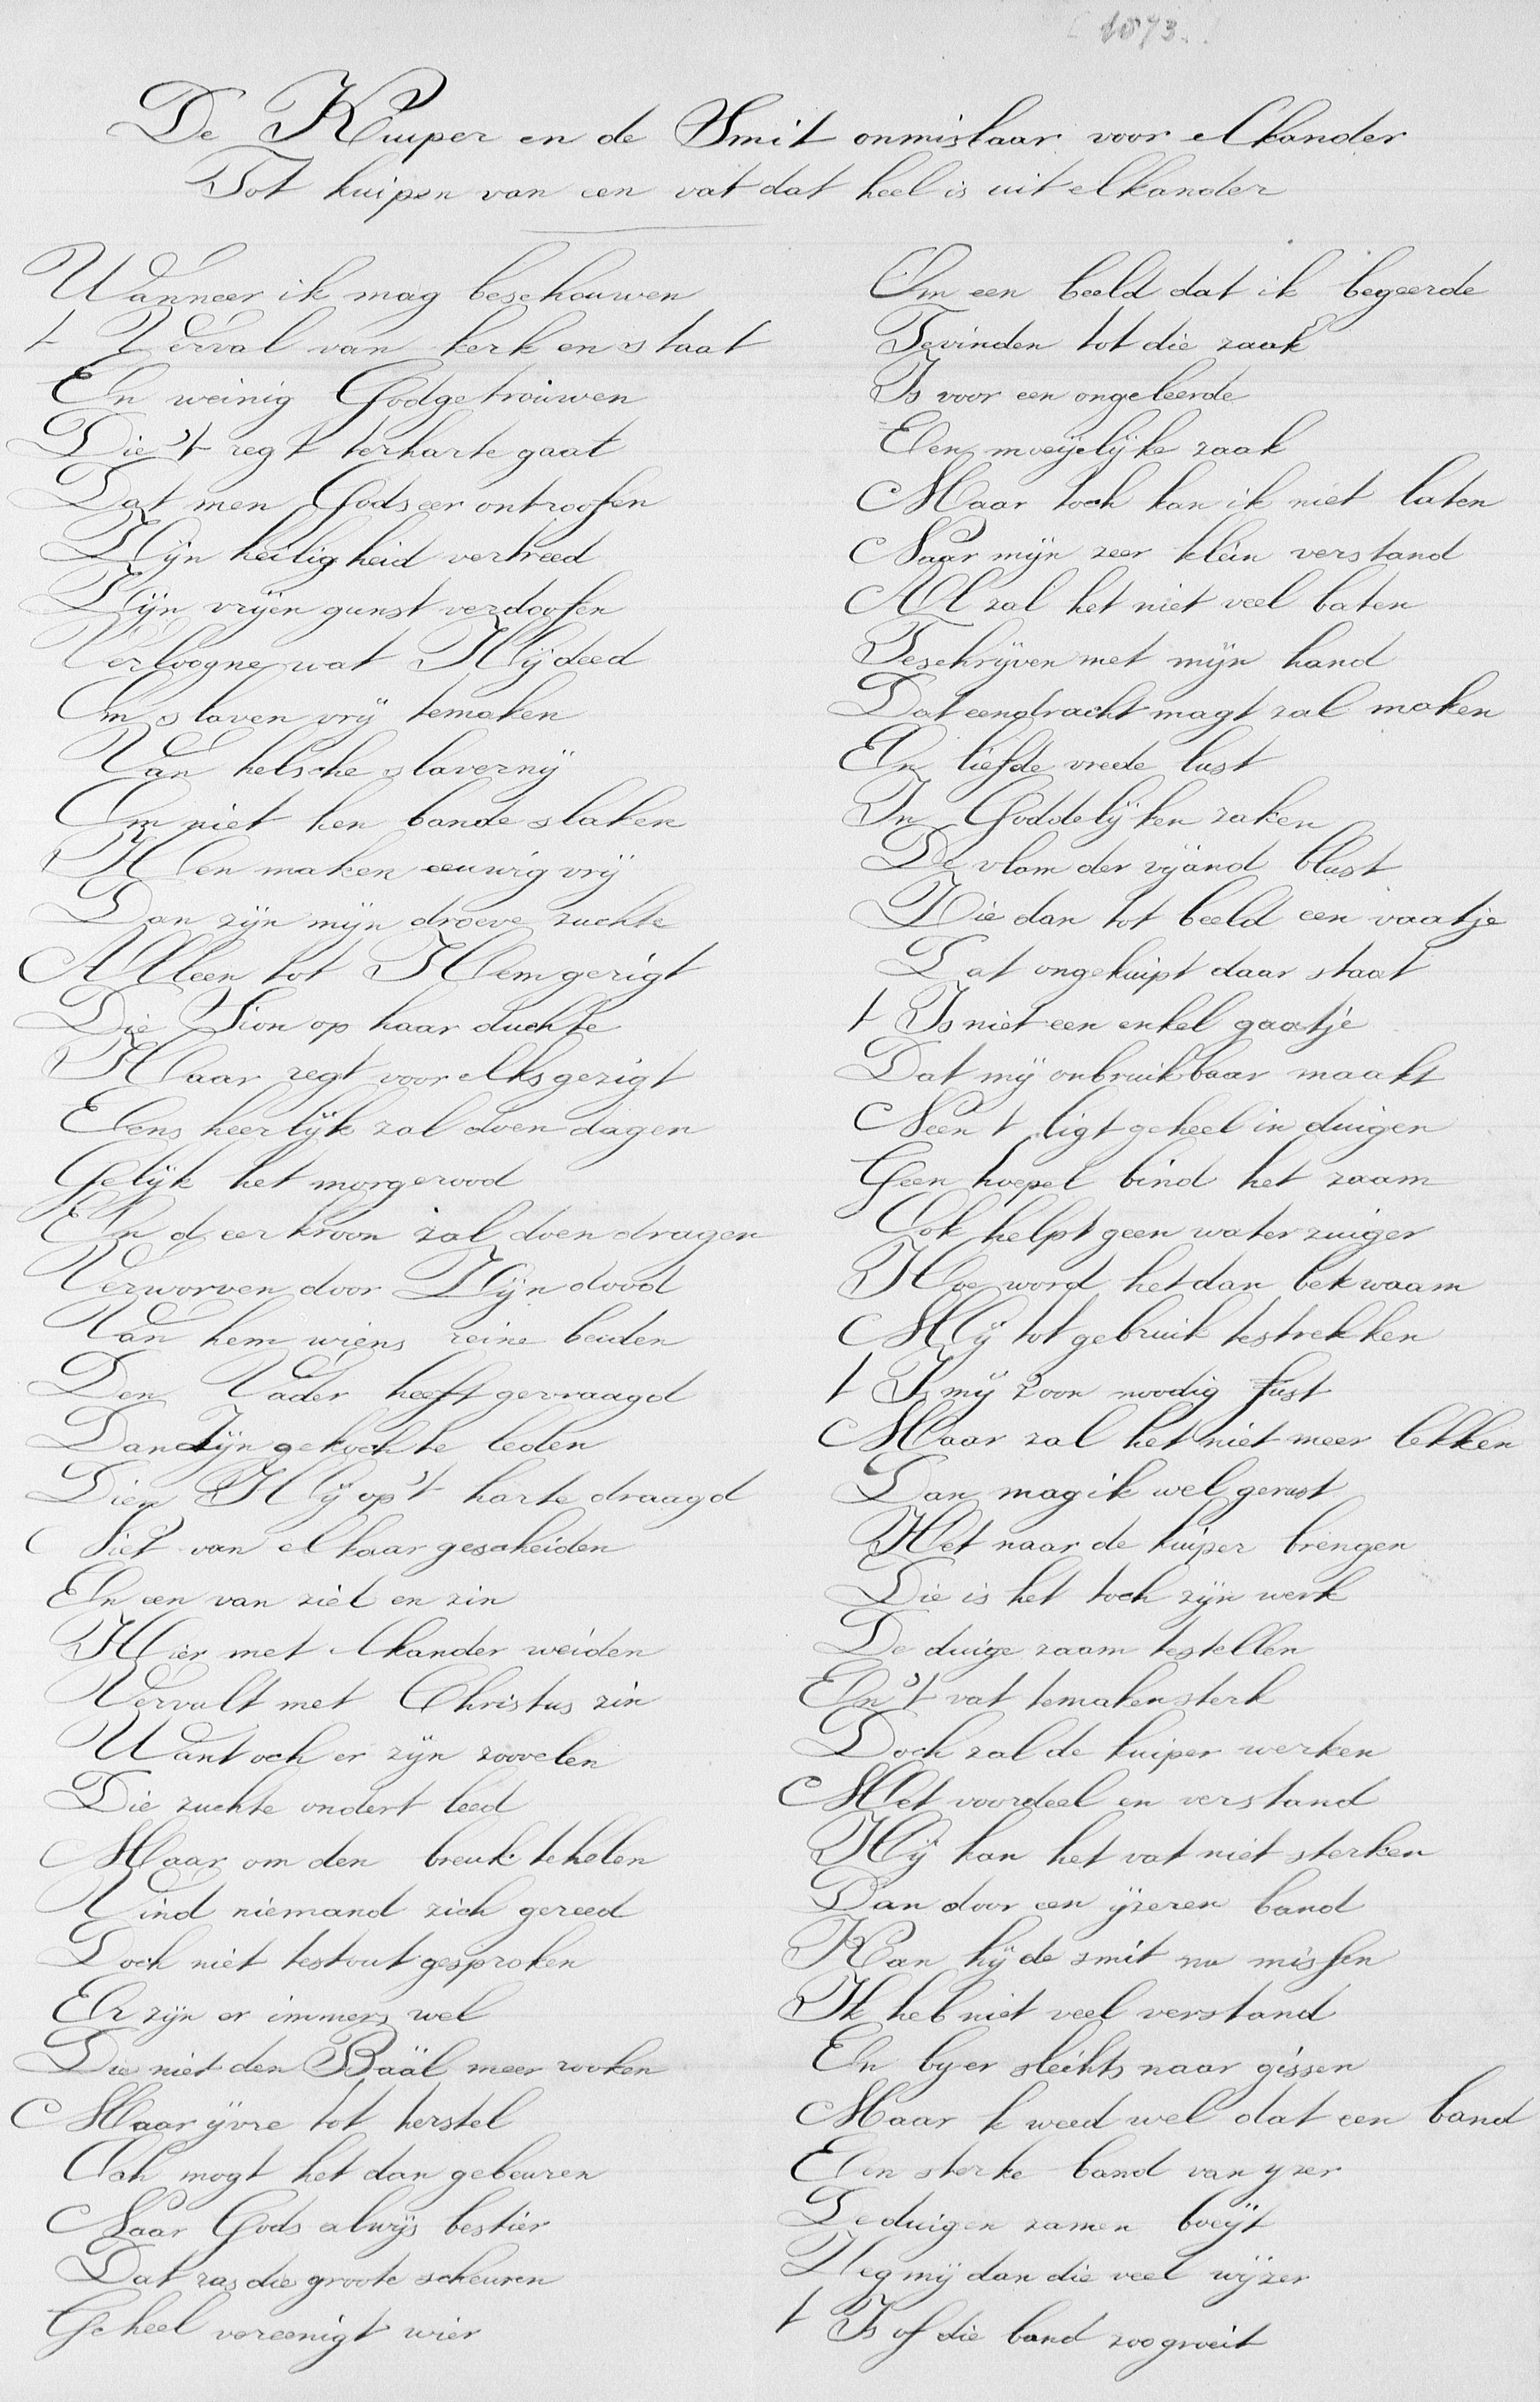 1873.
De Kuiper en de Smit onmisbaar voor elkander
Tot kuipen van een vat dat heel is uit elkander
Wanneer ik mag beschouwen
t Verval van kerk en staat
En weinig Godgetrouwen
Die 't regt terharte gaat
Dat men Gods eer ontroofen
Zijn heiligheid vertreed
Zijn vrijen gunst verdoofen
Verloogne wat Hij deed
Om slaven vrij temaken
Van helsche slavernij
Om niet hen bande slaken
Hen maken eeuwig vrij
Dan zijn mijn droeve zuchte
Alleen tot Hem gerigt
Die Sion op haar duchte
Haar regt voor elks gezigt
Eens heerlijk zal doen dagen
Gelijk het morgerood
En d, eerkroon zal doen dragen
Verworven door Zijn dood
Van hem wiens reine beden
Den Vader heeft gevraagd
Dan Zijn gekochte leden
Dien Hij op 't harte draagd
Niet van elkaar gescheiden
En een van ziel en zin
Hier met elkander weiden
Vervult met Christus zin
Want och er zijn zoovelen
Die zuchte ondert leed
Maar om den breuk tehelen
Vind niemand zich gereed
Doch niet testout gesproken
Er zijn er immers wel
Die niet den Baäl meer rooken
Maar ijvre tot herstel
Och mogt het dan gebeuren
Naar Gods alwijs bestier
Dat ras die groote scheuren
Geheel vereenigt wier
Om een beeld dat ik begeerde
Tevinden tot die zaak
Is voor een ongeleerde
Een moeijelijke zaak
Maar toch kan ik niet laten
Naar mijn zeer klein verstand
Al zal het niet veel baten
Teschrijven met mijn hand
Dat eendracht magt zal maken
En liefde vrede lust
In Goddelijken zaken
De vlam der vijand blust
Zie dan tot beeld een vaatje
Dat ongekuipt daar staat
t Is niet een enkel gaatje
Dat mij onbruikbaar maakt
Neen t ligt geheel in duigen
Geen hoepel bind het zaam
Ook helpt geen waterzuiger
Hoe word het dan bekwaam
Mij tot gebruik testrekken
t Is mij zoon noodig fust
Maar zal het niet meer lekken
Dan mag ik wel gerust
Het naar de kuiper brengen
Die is het toch zijn werk
De duige zaam testellen
En 't vat temaken sterk
Doch zal de kuiper werken
Met voordeel en verstand
Hij kan het vat niet sterken
Dan door een ijzeren band
Kan hij de smit nu missen
Ik heb niet veel verstand
En byer slechts naar gissen
Maar k weed wel dat een band
Een sterke band van yzer
De duigen zamen boeijt
Zeg mij dan die veel wijzer
t Is of die band zoo groeit